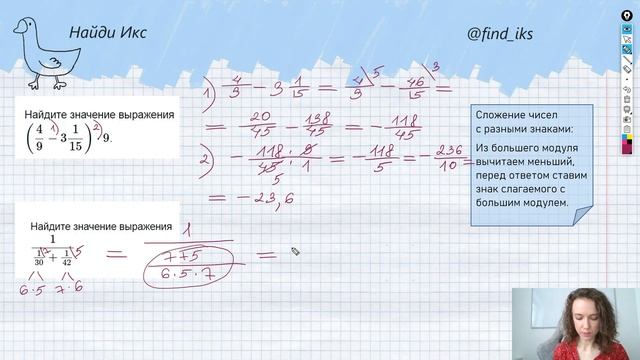 Найди Икс
@find_iks
Найдите значение выражения
(4/9 - 3 1/15) · 9.
1) 2)
1) 4/9 - 3 1/15 = 4\5/9 - 46\3/15 =
= 20/45 - 138/45 = - 118/45
2) - 118/45 · 9/1 = - 118/5 = - 236/10 =
5
= - 23,6
Сложение чисел
с разными знаками:
Из большего модуля
вычитаем меньший,
перед ответом ставим
знак слагаемого с
большим модулем.
Найдите значение выражения
1/(1\7/30 + 1\5/42) = 1/((7+5)/(6·5·7)) =
6·5 7·6